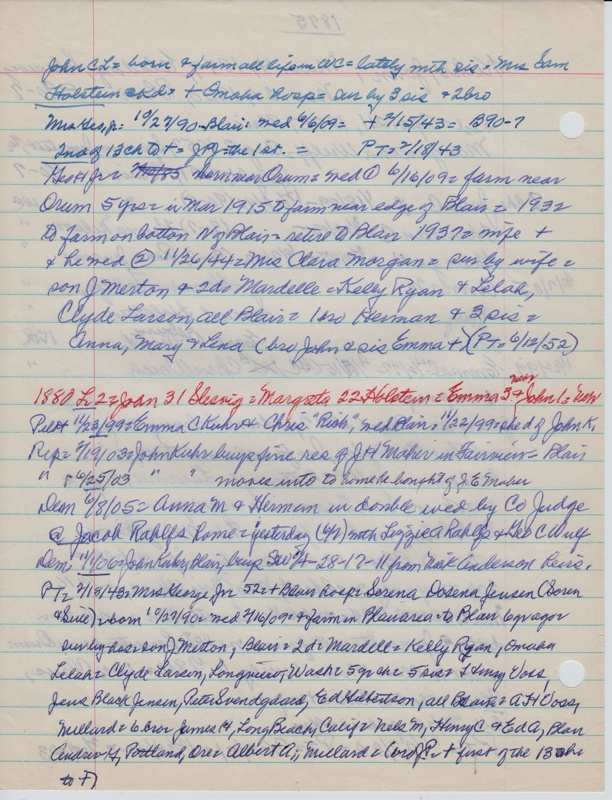 John C L = born & farm all life in WC = lately with sis = Mrs Sam
Holstein & d = + Omaha hosp = sur by 3 sis & 2 bro
Mrs Geo, Jr = 10/27/90 - Blair = wed 6/6/09 = + 2/15/43 = B90-7
2nd of 13 ch to + = of the 1st. = PT = 2/18/43
Geo H Jr = born near Orum = wed ① 6/16/09 = farm near
Orum 5 yrs = in Mar 1915 to farm near edge of Blair = 1932
to farm on bottom N of Blair = retire to Blair 1937 = wife +
& he wed ② 11/26/44 = Mrs Clara Morgan = sur by wife =
son J Merton & 2d = Mardelle = Kelly Ryan & Lelah,
Clyde Larson, all Blair = 1 bro Herman & 3 sis =
Anna, Mary & Lena (bro John & sis Emma +) (PT = 6/12/52)
1880 L 2 = Joan 31 Slesvig = Margreta 22 Holstein = Emma 5 9/ John 1 = Neb
Pilot 11/23/99 = Emma C Kuhr & Chris "Rish", wed Blair 11/22/99 = she d of John K.
Rep = 2/19/03 = John Kuhr buys fine res of J H Maher in Fairview = Blair
" = 6/25/03 " " moves into to home he bought of J E Maher
Dem 6/8/05 = Anna M & Herman in double wed by Co Judge
@ Jacob Rahlfs home = yesterday (6/7) with Lizzie A Rahlfs & Geo C Wulf
Dem 1/1/06 = John Kuhr, Blair, buys SW 1/4 - 28-17-11 from Nels Anderson heirs.
PT = 2/18/43 = Mrs George Jr 52 = + Blair hosp = Serena Dosena Jensen (Soren
& Sine) = born 10/27/90 = wed 6/16/09 = & farm in Blair area = to Blair 6 yr ago =
sur by hus = son J Merton, Blair = 2 d = Mardell = Kelly Ryan, Omaha
Lelah = Clyde Larson, Longview, Wash = 5 gr ch = 5 sis = F Henry Voss,
Jens Black Jensen, Peter Svendgaard, Ed Hilbertson, all Blair = A H Voss,
Millard = 6 bro = James H, Long Beach, Calif = Nels M, Henry C & Ed A, Blair
Andrew H, Portland, Ore = Albert A, Millard = (bro J P = + first of the 13 ch
to +)